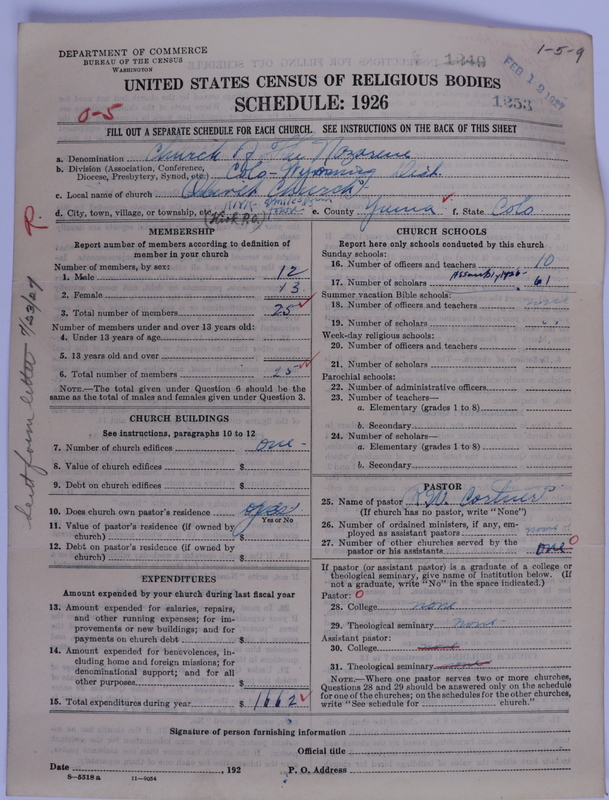 DEPARTMENT OF COMMERCE
BUREAU OF THE CENSUS
WASHINGTON
1-5-9
1249
FEB 19 1927
1253
UNITED STATES CENSUS OF RELIGIOUS BODIES
SCHEDULE: 1926
0-5
FILL OUT A SEPARATE SCHEDULE FOR EACH CHURCH. SEE INSTRUCTIONS ON THE BACK OF THIS SHEET
a. Denomination Church of The Nazarene
b. Division (Association, Conference, Diocese, Presbytery, Synod, etc.) Colo-Wyoming Dist.
c. Local name of church Church
d. City, town, village, or township, etc. Kirk e. County Yuma f. State Colo
R.
sent form letter 7/23/27
MEMBERSHIP
Report number of members according to definition of member in your church
Number of members, by sex:
1. Male 12
2. Female 13
3. Total number of members 25
Number of members under and over 13 years old:
4. Under 13 years of age
5. 13 years old and over
6. Total number of members 25
NOTE.—The total given under Question 6 should be the same as the total of males and females given under Question 3.
CHURCH BUILDINGS
See instructions, paragraphs 10 to 12
7. Number of church edifices one
8. Value of church edifices $
9. Debt on church edifices $
10. Does church own pastor's residence yes
Yes or No
11. Value of pastor's residence (if owned by church) $
12. Debt on pastor's residence (if owned by church) $
EXPENDITURES
Amount expended by your church during last fiscal year
13. Amount expended for salaries, repairs, and other running expenses; for improvements or new buildings; and for payments on church debt $
14. Amount expended for benevolences, including home and foreign missions; for denominational support; and for all other purposes $
15. Total expenditures during year $ 1662
CHURCH SCHOOLS
Report here only schools conducted by this church
Sunday schools:
16. Number of officers and teachers 10
17. Number of scholars 61
Summer vacation Bible schools:
18. Number of officers and teachers none
19. Number of scholars "
Week-day religious schools:
20. Number of officers and teachers
21. Number of scholars
Parochial schools:
22. Number of administrative officers
23. Number of teachers—
a. Elementary (grades 1 to 8)
b. Secondary
24. Number of scholars—
a. Elementary (grades 1 to 8)
b. Secondary
PASTOR
25. Name of pastor R.W.
(If church has no pastor, write "None")
26. Number of ordained ministers, if any, employed as assistant pastors none
27. Number of other churches served by the pastor or his assistants one 0
If pastor (or assistant pastor) is a graduate of a college or theological seminary, give name of institution below. (If not a graduate, write "No" in the space indicated.)
Pastor: 0
28. College none
29. Theological seminary none
Assistant pastor:
30. College none
31. Theological seminary none
NOTE.—Where one pastor serves two or more churches, Questions 28 and 29 should be answered only on the schedule for one of the churches; on the schedules for the other churches, write "See schedule for church."
Signature of person furnishing information
Official title
Date , 192 P. O. Address
8-5518 a 11-9054